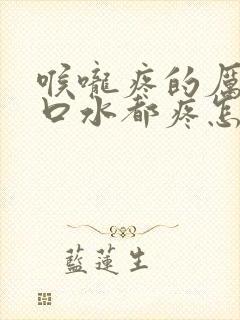 喉嚨疼的厲
口水都疼怎
藍蓮生